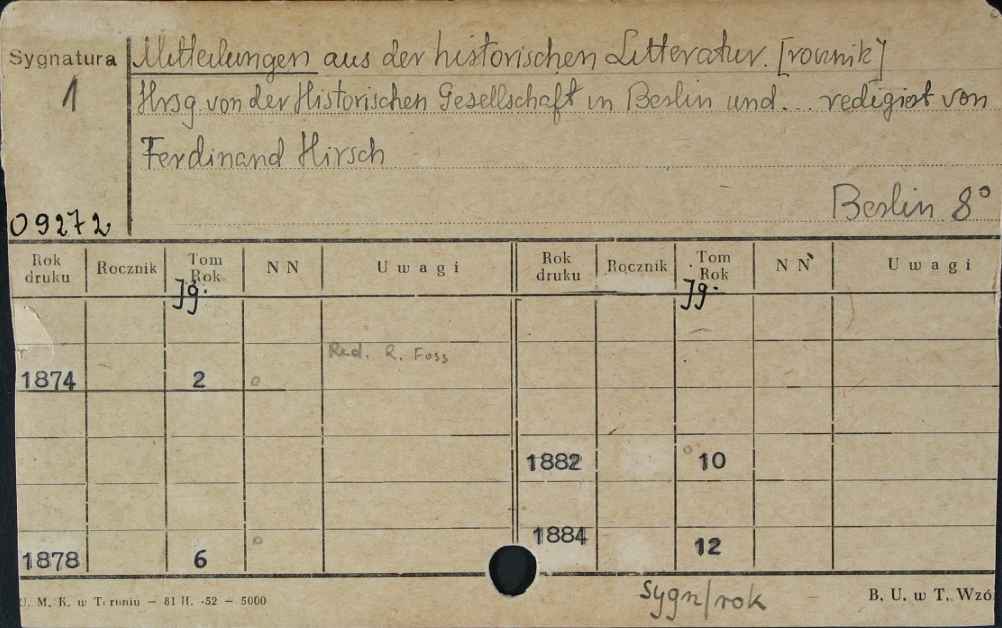 Sygnatura
1
09272
Mitteilungen aus der historischen Litteratur. [rocznik]
Hrsg. von der Historischen Gesellschaft in Berlin und... redigiert von
Ferdinand Hirsch
Berlin 8°
Rok druku Rocznik Tom Rok Jg. NN Uwagi Rok druku Rocznik Tom Rok Jg. NN Uwagi
Red. R. Foss
1874 2 o
1882 o 10
1884 12
1878 6 o
U. M. K. w Toruniu — 81 II. -52 — 5000
Sygn/rok
B. U. w T. Wzó